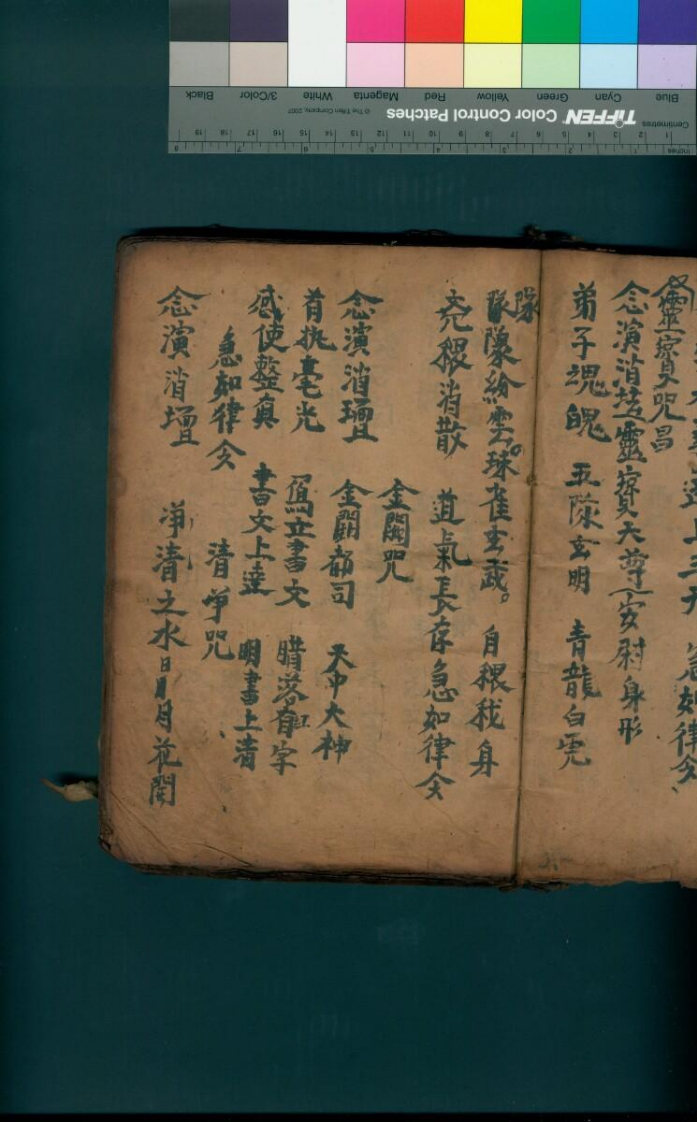 靈寶咒昌
念演消壇靈寶天尊安尉身形
弟子魂魄 五陳玄明 青龍白虎
隊隊紛雲珠雀玄武 自猥我身
猥消散 道氣長存急如律令
金闕咒
念演消壇 金闕都司 天中大神
有执毫光 立書文 腊落首字
感使整眞 書文上達 明書上清
急如律令 清爭咒
念演消壇 净清之水日月月花開
TIFFEN Color Control Patches
© The Tiffen Company, 2007
Blue Cyan Green Yellow Red Magenta White 3/Color Black
Centimetres
Inches